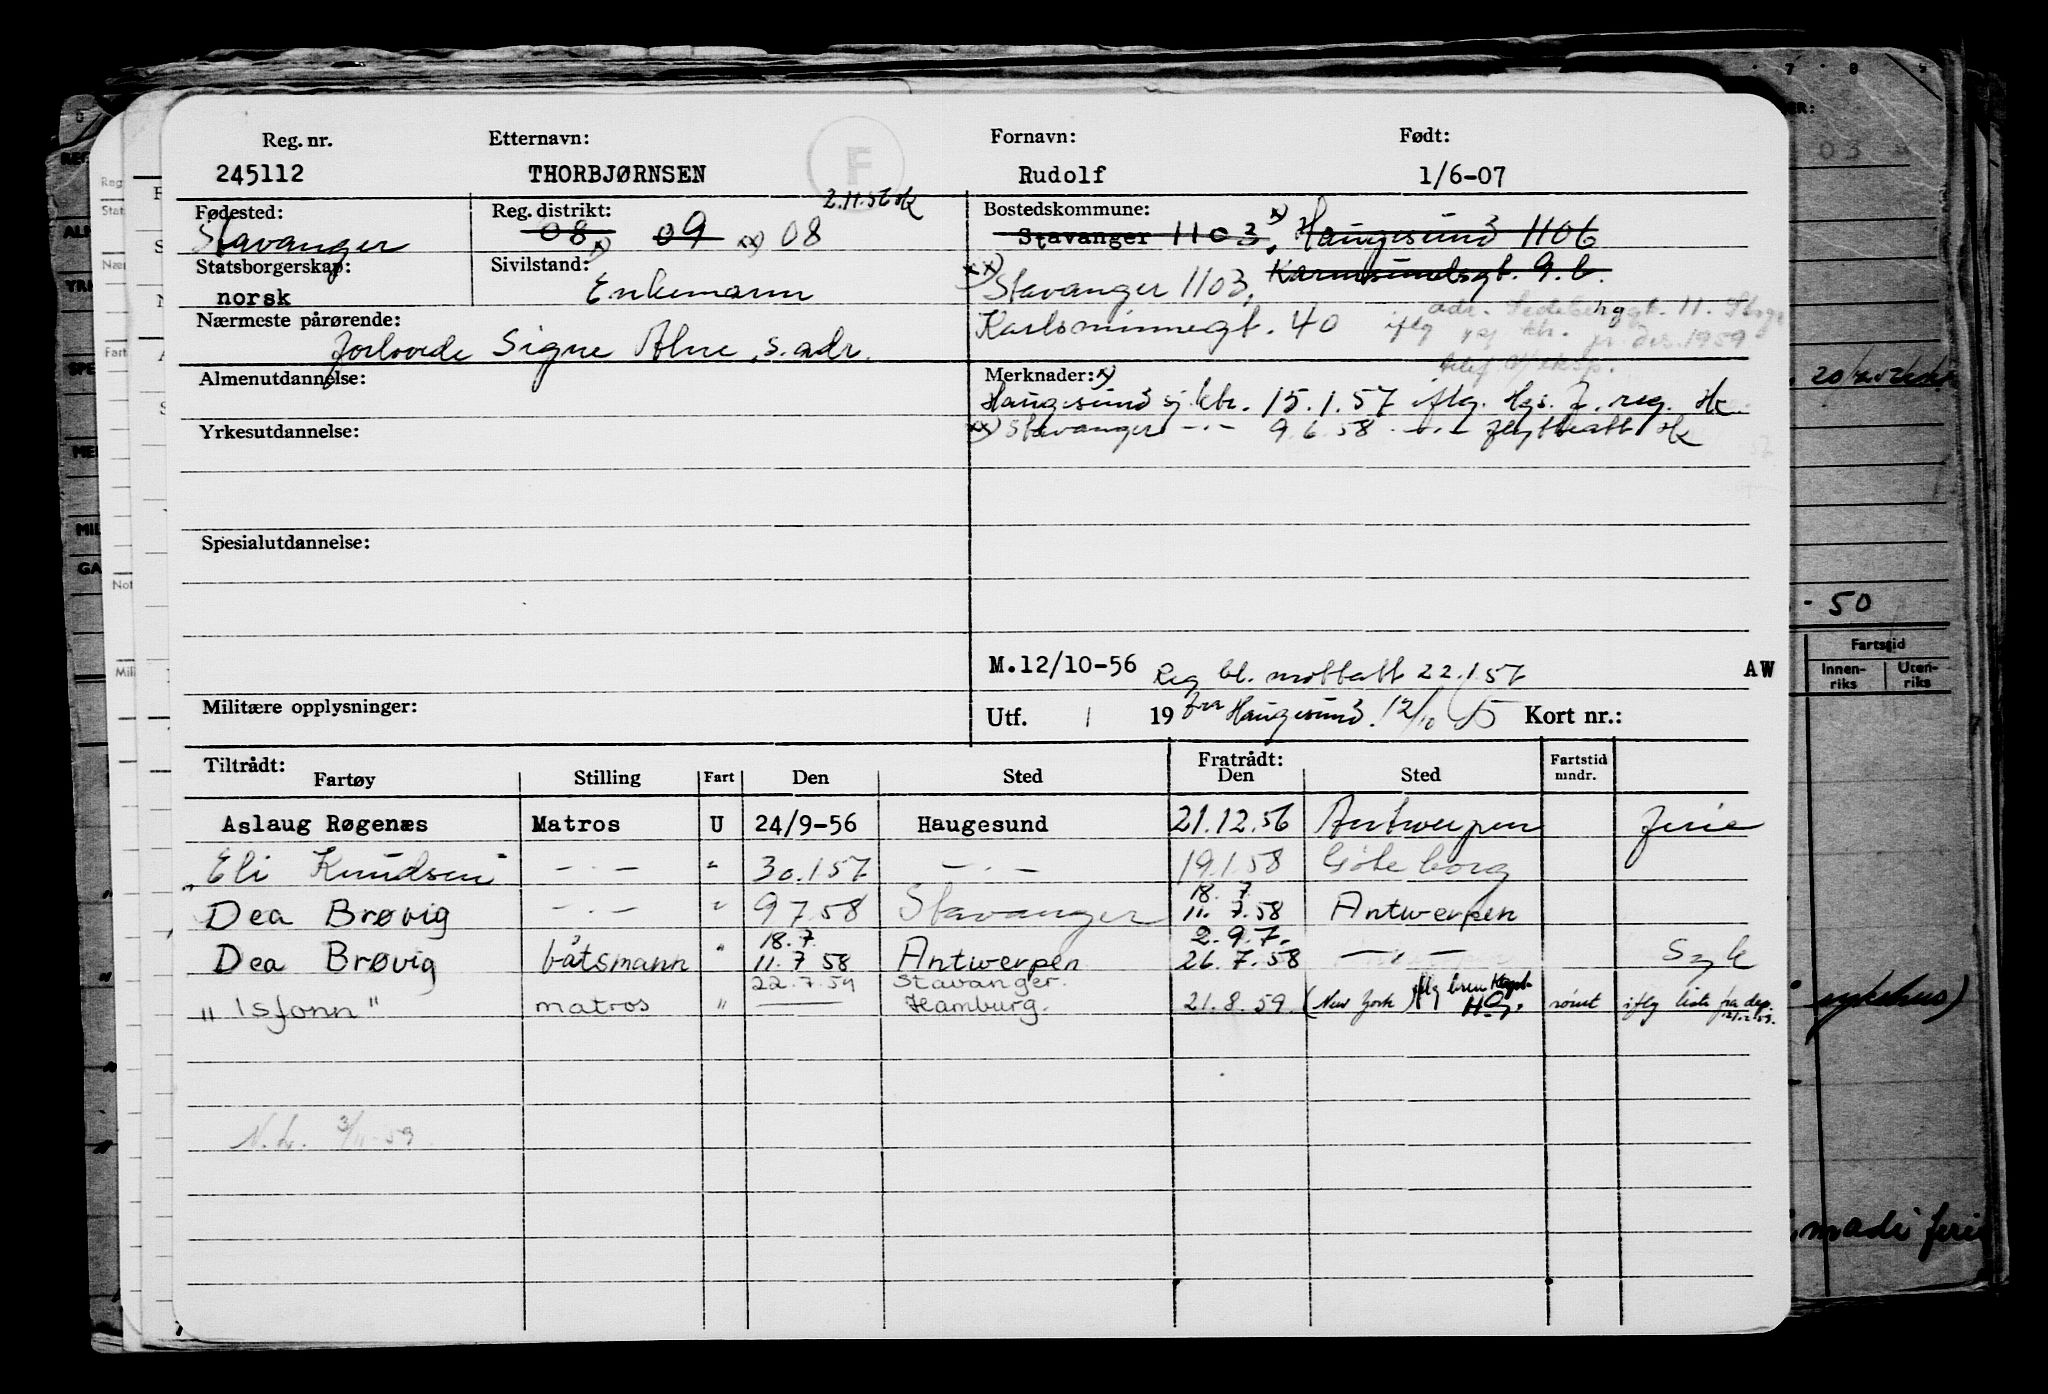 Reg. nr. Etternavn: Fornavn: Født:
245112 THORBJØRNSEN F Rudolf 1/6-07
Fødested: Reg. distrikt: 2.11.56 Hk Bostedskommune:
Stavanger 08 x) 09 xx) 08 Stavanger 1103, x) Haugesund 1106
Statsborgerskap: Sivilstand: Karmsundsgt. 9.b.
norsk Enkemann xx) Stavanger 1103,
Nærmeste pårørende: Karlsminnegt. 40
forlovede Signe Alne, s. adr.
iflg. des. 1959
Almenutdannelse: Merknader: x)
Haugesund sj.ktr. 15.1.57 iflg. Hgs. f. reg. Hk
Yrkesutdannelse: xx) Stavanger -"- 9.6.58 -"- flyttatt Hk
Spesialutdannelse:
M.12/10-56 Reg bl. mottatt 22.1.57 AW
Militære opplysninger: Utf. 19 fra Haugesund. 12/10 Kort nr.:
Tiltrådt: Fratrådt: Fartstid
Fartøy Stilling Fart Den Sted Den Sted mndr.
Aslaug Røgenæs Matros U 24/9-56 Haugesund 21.12.56 Antwerpen ferie
Eli Knudsen -"- " 30.1.57 -"- 19.1.58 Göteborg
18.7
Dea Brøvig -"- " 9.7.58 Stavanger 11.7.58 Antwerpen
18.7. 2.9.7.
Dea Brøvig båtsmann " 11.7.58 Antwerpen 26.7.58 -"- Syk
22.7.59 Stavanger.
"Isfonn" matros " Hamburg. 21.8.59 (New York) iflg brev HG. rømt iflg liste fra dep.
3/11-59
Fartstid
Innenriks Utenriks
50
sykehus)
ferie